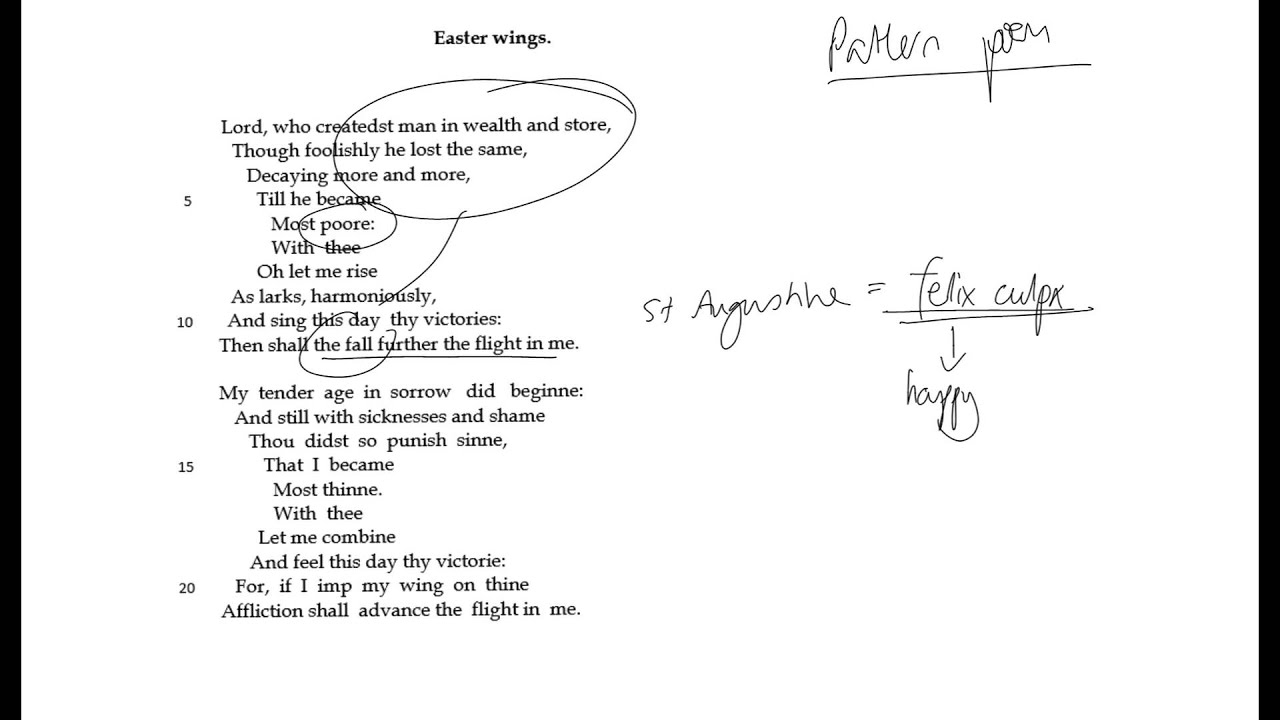 Easter wings.
Pattern poem
Lord, who createdst man in wealth and store,
Though foolishly he lost the same,
Decaying more and more,
5 Till he became
Most poore:
With thee
Oh let me rise
As larks, harmoniously,
10 And sing this day thy victories:
Then shall the fall further the flight in me.
My tender age in sorrow did beginne:
And still with sicknesses and shame
Thou didst so punish sinne,
15 That I became
Most thinne.
With thee
Let me combine
And feel this day thy victorie:
20 For, if I imp my wing on thine
Affliction shall advance the flight in me.
St Augustine = felix culpa
happy